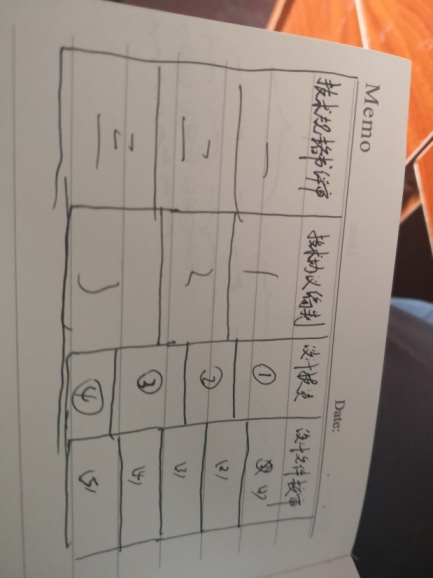 Memo
Date:
技术规格书评审 技术协议编制 设计 设计文件校审
一 1 ① (1)
二 2 ② (2)
三 3 ③ (3)
④ (4)
(5)